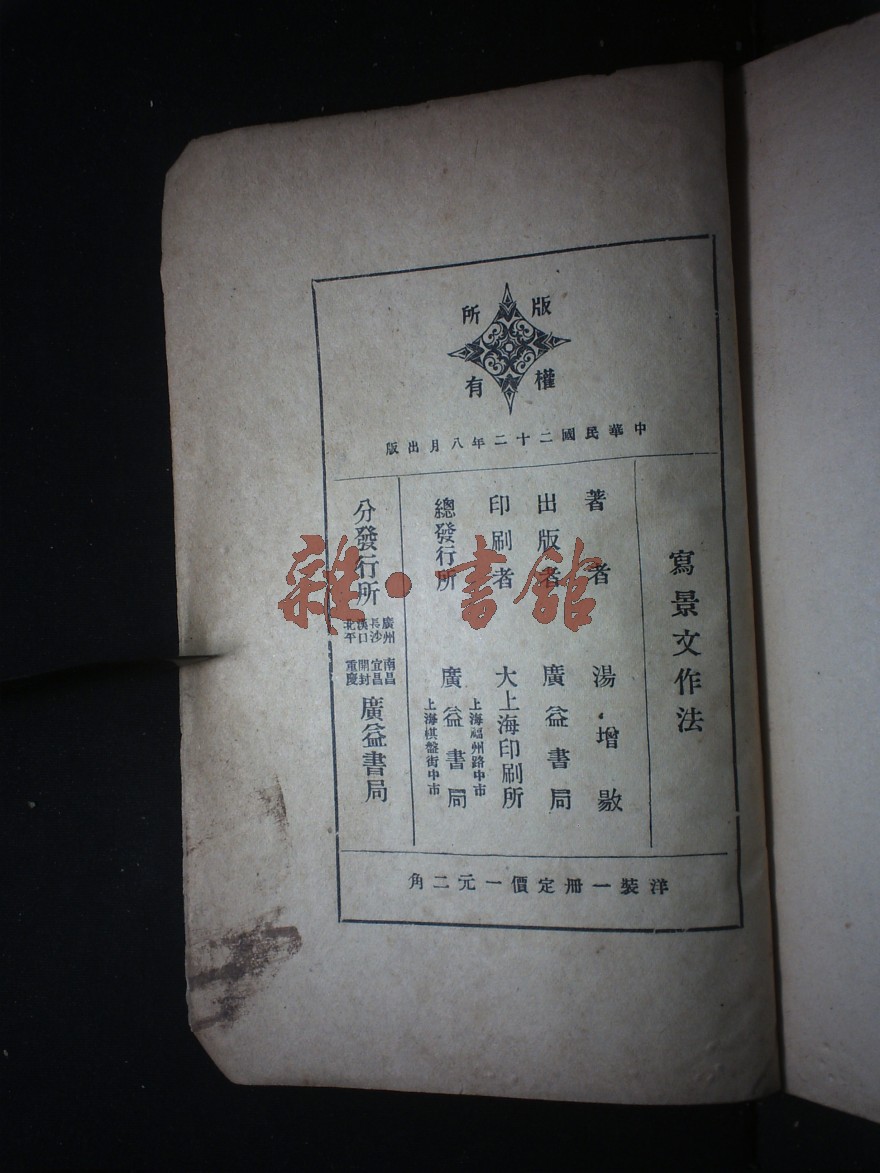 版權所有
中華民國二十二年八月出版
寫景文作法
著者 湯增敭
出版者 廣益書局
印刷者 大上海印刷所
上海福州路中市
總發行所 廣益書局
上海棋盤街中市
分發行所
廣州 南昌
長沙 宜昌
漢口 開封
北平 重慶
廣益書局
洋裝一册定價一元二角
雜·書館